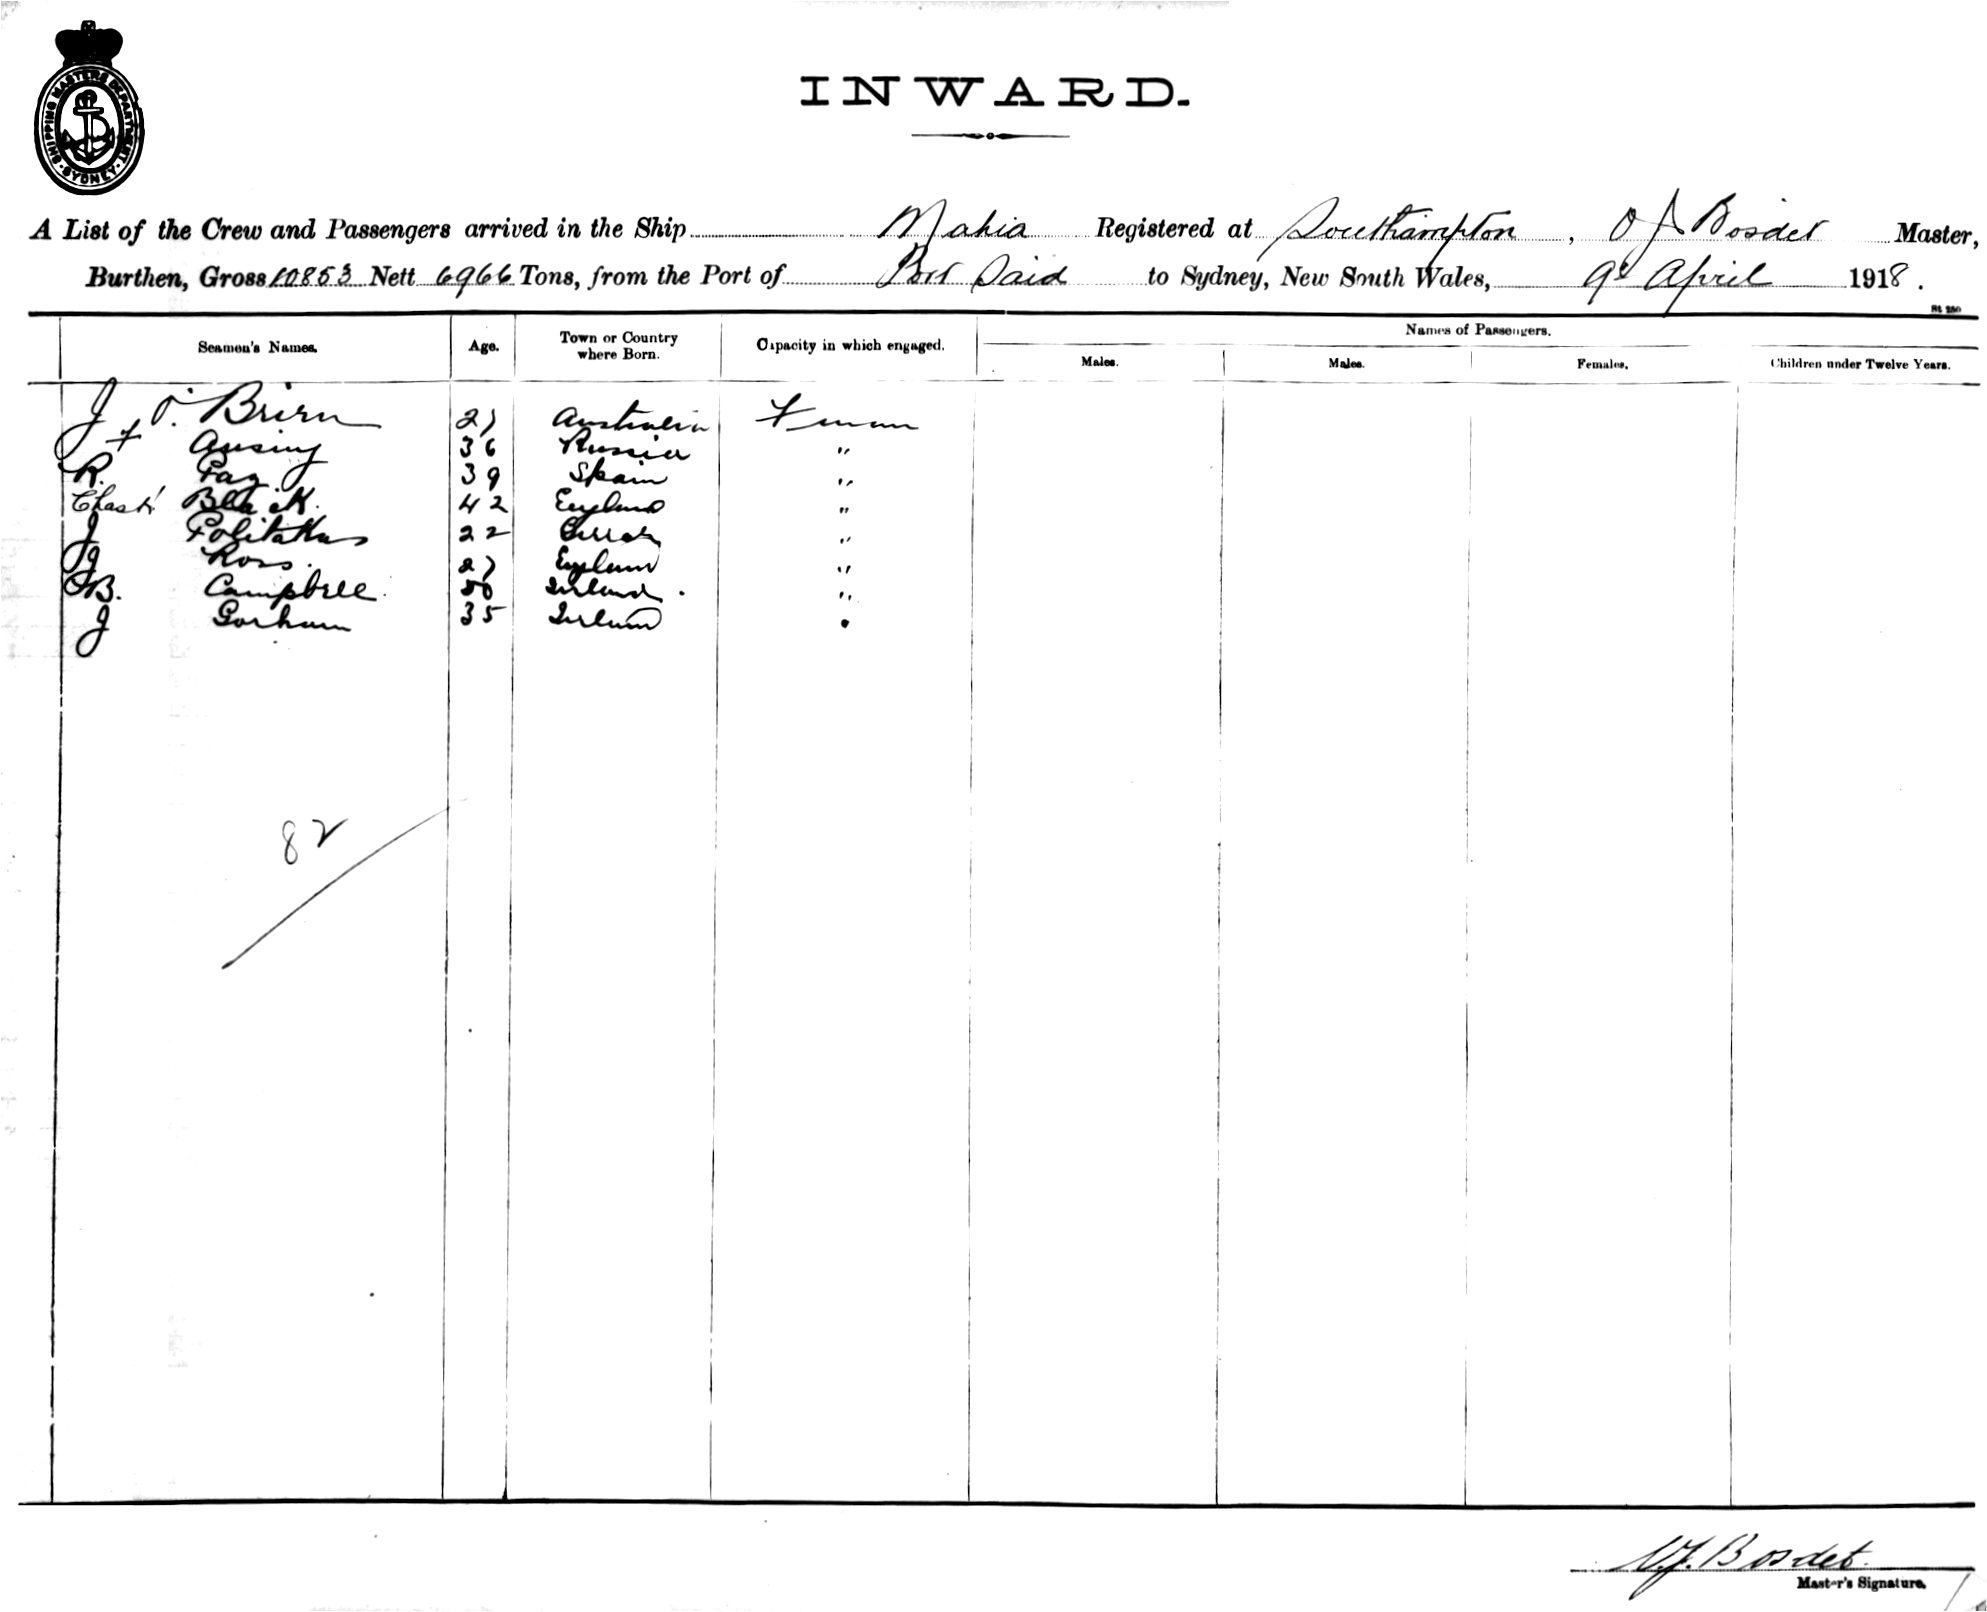 SHIPPING MASTERS DEPARTMENT · SYDNEY ·
INWARD.
A List of the Crew and Passengers arrived in the Ship Mahia Registered at Southampton, O J Bosdet Master,
Burthen, Gross 10853 Nett 6966 Tons, from the Port of Port Said to Sydney, New South Wales, 9th April 1918.
Seamen's Names. Age. Town or Country where Born. Capacity in which engaged. Names of Passengers.
Males. Males. Females. Children under Twelve Years.
J O'Brien 27 Australia Fireman
J Ausing 36 Russia "
R. Paz 39 Spain "
Chas H Black 42 England "
J 22 "
J Ross 27 England "
B. Campbell 50 Ireland "
J Gorham 35 Ireland "
82
O.J. Bosdet
Master's Signature.